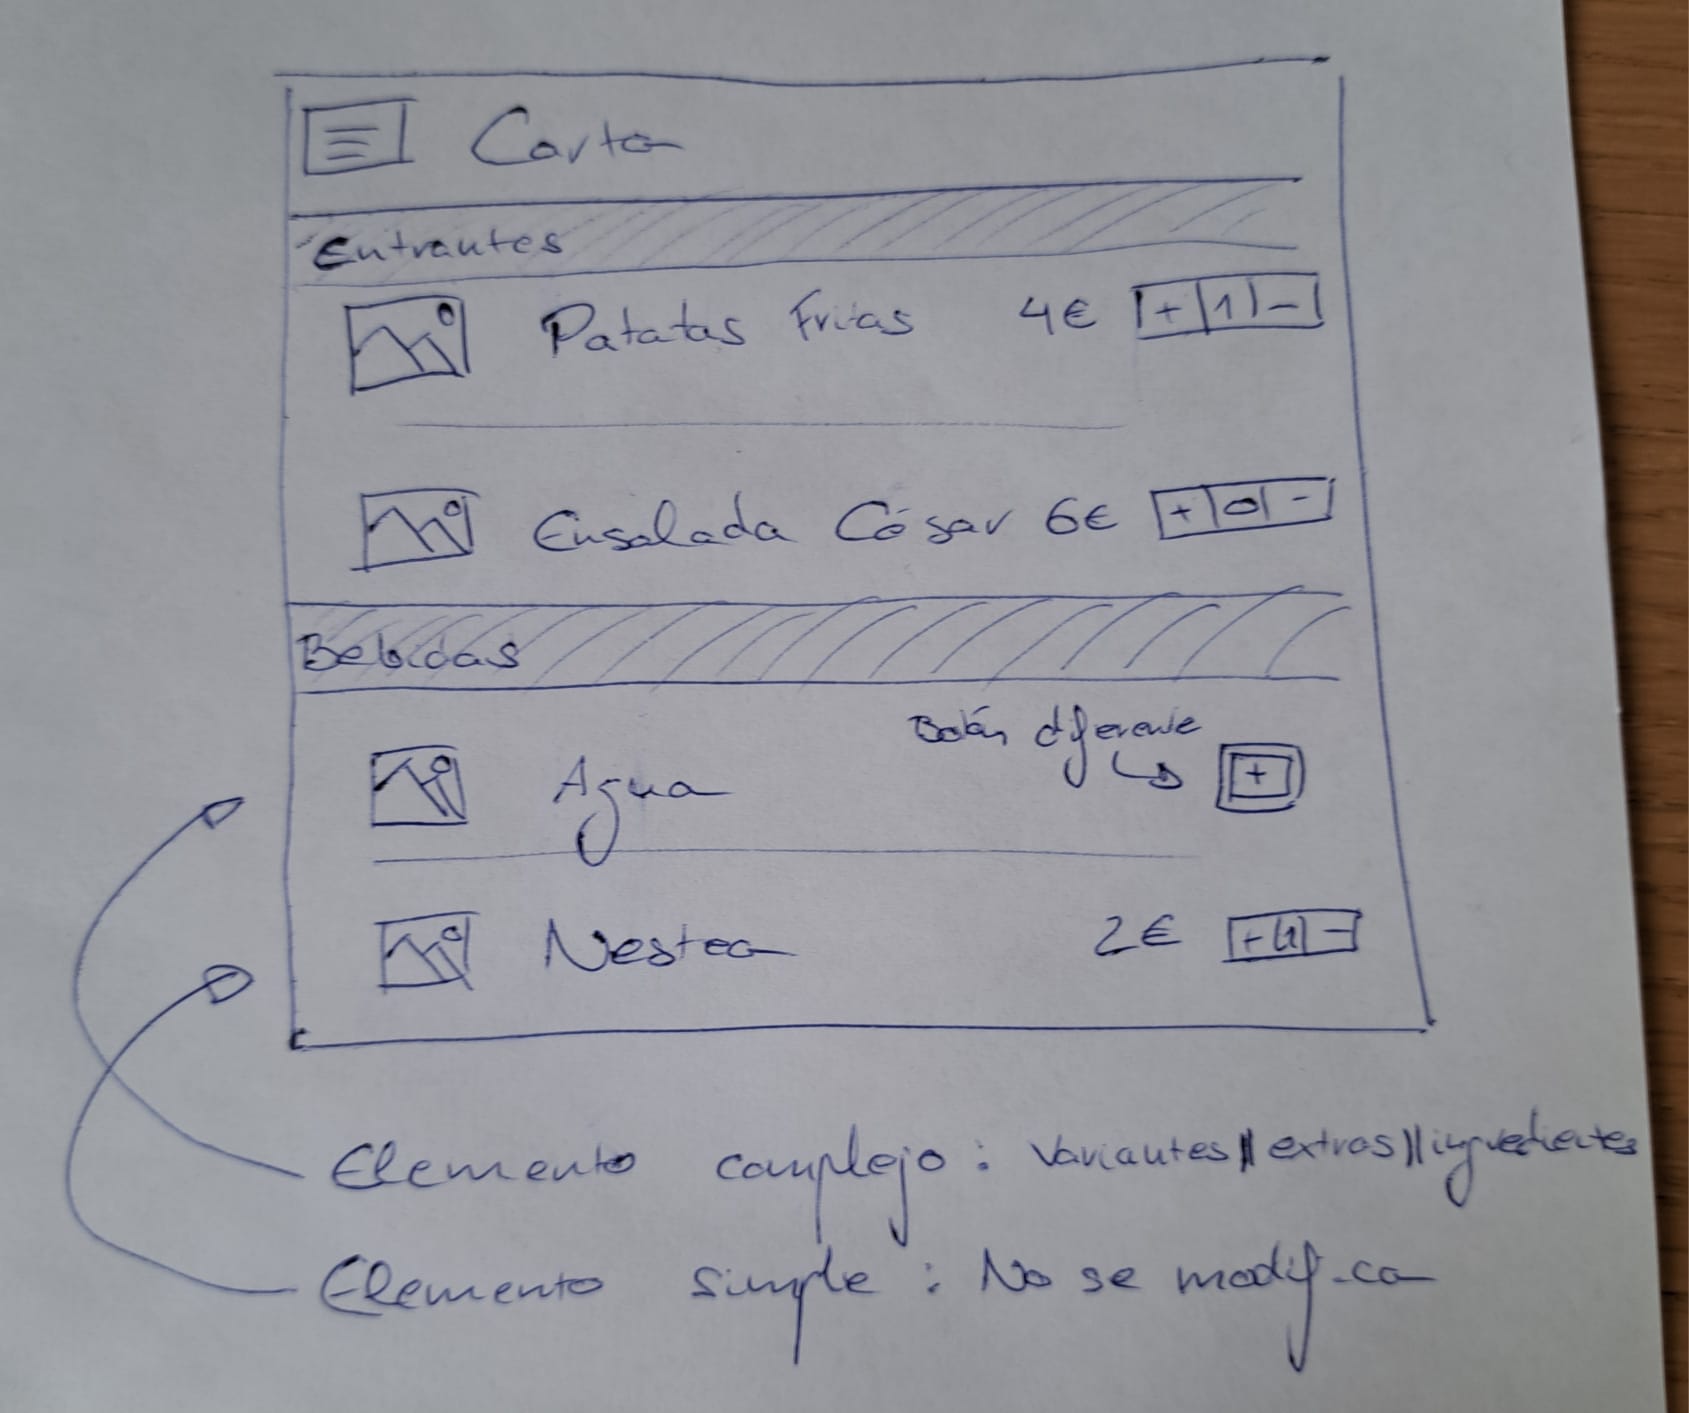 Carta
Entrantes
Patatas Fritas 4€ + 1 -
Ensalada César 6€ + 0 -
Bebidas
Botón diferente
Agua +
Nestea 2€ + 1 -
Elemento complejo: Variantes || extras || ingredientes
Elemento simple: No se modifica